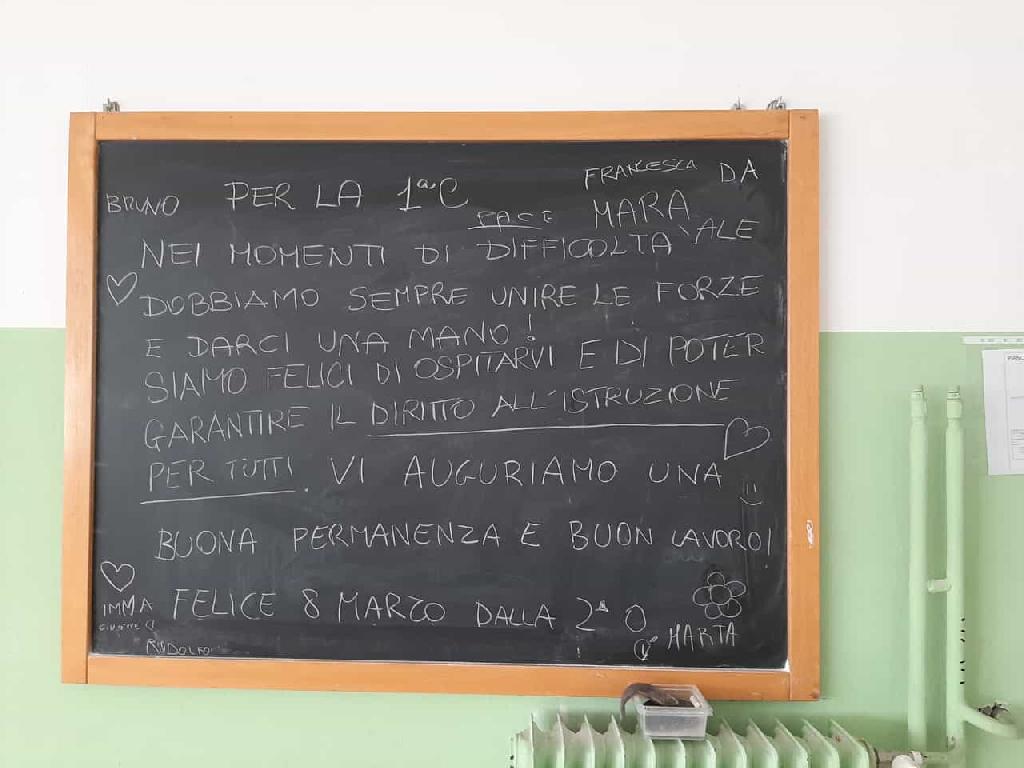 FRANCESCA DA
BRUNO PER LA 1ª C MARA
PACE ALE
NEI MOMENTI DI DIFFICOLTA'
DOBBIAMO SEMPRE UNIRE LE FORZE
E DARCI UNA MANO!
SIAMO FELICI DI OSPITARVI E DI POTER
GARANTIRE IL DIRITTO ALL'ISTRUZIONE
PER TUTTI. VI AUGURIAMO UNA
BUONA PERMANENZA E BUON LAVORO!
FELICE 8 MARZO DALLA 2ª O
IMMA
MARTA
RODOLFO